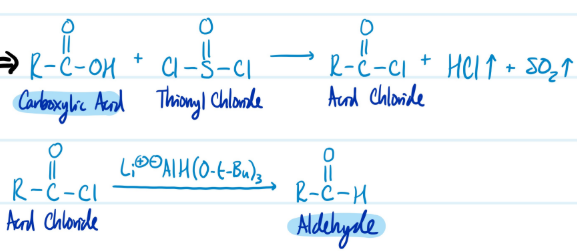 O O O
⇒ R-C-OH + Cl-S-Cl → R-C-Cl + HCl↑ + SO₂↑
Carboxylic Acid Thionyl Chloride Acid Chloride
O Li⊕⊖AlH(O-t-Bu)₃ O
R-C-Cl → R-C-H
Acid Chloride Aldehyde